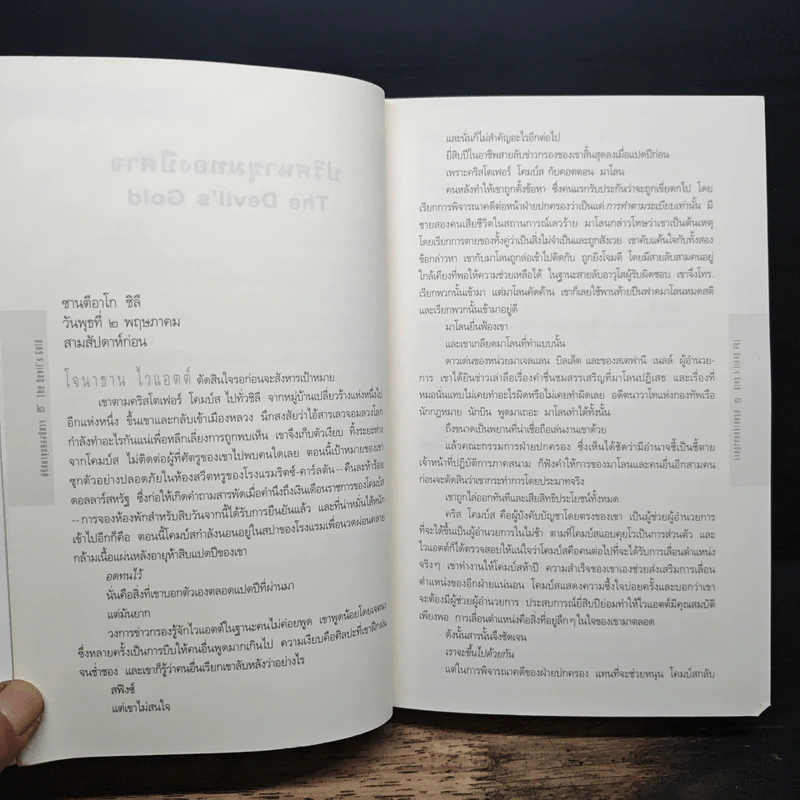 ปริศนาขุมทองปีศาจ
The Devil's Gold
ซานติอาโก ชิลี
วันพุธที่ ๒ พฤษภาคม
สามสัปดาห์ก่อน
โจนาธาน ไวแอตต์ ตัดสินใจรอก่อนจะสังหารเป้าหมาย
เขาตามคริสโตเฟอร์ โคมบ์ส ไปทั่วชิลี จากหมู่บ้านเปลี่ยวร้างแห่งหนึ่งไป
อีกแห่งหนึ่ง ขึ้นเขาและกลับเข้าเมืองหลวง นึกสงสัยว่าไอ้สารเลวจอมลวงโลก
กำลังทำอะไรกันแน่เพื่อหลีกเลี่ยงการถูกพบเห็น เขาจึงเก็บตัวเงียบ ทิ้งระยะห่าง
จากโคมบ์ส ไม่ติดต่อผู้ที่ศัตรูของเขาไปพบคนใดเลย ตอนนี้เป้าหมายของเขา
ซุกตัวอย่างปลอดภัยในห้องสวีตหรูของโรงแรมริตซ์-คาร์ลตัน--คืนละห้าร้อย
ดอลลาร์สหรัฐ ซึ่งก่อให้เกิดคำถามสารพัดเมื่อคำนึงถึงเงินเดือนราชการของโคมบ์ส
--การจองห้องพักสำหรับสิบวันจากนี้ได้รับการยืนยันแล้ว และที่น่าหมั่นไส้หนัก
เข้าไปอีกก็คือ ตอนนี้โคมบ์สกำลังนอนอยู่ในสปาของโรงแรมเพื่อนวดผ่อนคลาย
กล้ามเนื้อแผ่นหลังอายุห้าสิบแปดปีของเขา
อดทนไว้
นั่นคือสิ่งที่เขาบอกตัวเองตลอดแปดปีที่ผ่านมา
แต่มันยาก
วงการข่าวกรองรู้จักไวแอตต์ในฐานะคนไม่ค่อยพูด เขาพูดน้อยโดยเจตนา
ซึ่งหลายครั้งเป็นการบีบให้คนอื่นพูดมากเกินไป ความเงียบคือศิลปะที่เขาฝึกฝน
จนช่ำชอง และเขาก็รู้ว่าคนอื่นเรียกเขาลับหลังว่าอย่างไร
สฟิงซ์
แต่เขาไม่สนใจ
ปริศนาขุมทองปีศาจ ๒ The Devil's Gold
และนั่นก็ไม่สำคัญอะไรอีกต่อไป
ยี่สิบปีในอาชีพสายลับข่าวกรองของเขาสิ้นสุดลงเมื่อแปดปีก่อน
เพราะคริสโตเฟอร์ โคมบ์ส กับคอตตอน มาโลน
คนหลังทำให้เขาถูกตั้งข้อหา ซึ่งคนแรกรับประกันว่าจะถูกเขี่ยตกไป โดย
เรียกการพิจารณาคดีต่อหน้าฝ่ายปกครองว่าเป็นแค่ การทำตามระเบียบเท่านั้น มี
ชายสองคนเสียชีวิตในสถานการณ์เลวร้าย มาโลนกล่าวโทษว่าเขาเป็นต้นเหตุ
โดยเรียกการตายของทั้งคู่ว่าเป็นสิ่งไม่จำเป็นและถูกสังเวย เขาคับแค้นใจกับทั้งสอง
ข้อกล่าวหา เขากับมาโลนถูกล่อเข้าไปติดกับ ถูกยิงโจมตี โดยมีสายลับสามคนอยู่
ใกล้เคียงที่พอให้ความช่วยเหลือได้ ในฐานะสายลับอาวุโสผู้รับผิดชอบ เขาจึงโทร.
เรียกพวกนั้นเข้ามา แต่มาโลนคัดค้าน เขาก็เลยใช้พานท้ายปืนฟาดมาโลนหมดสติ
และเรียกพวกนั้นเข้ามาอยู่ดี
มาโลนยื่นฟ้องเขา
และเขาเกลียดมาโลนที่ทำแบบนั้น
ดาวเด่นของหน่วยมาเจลแลน บิลเล็ต และของสเตฟานี เนลล์ ผู้อำนวย-
การ เขาได้ยินข่าวเล่าลือเรื่องคำชื่นชมสรรเสริญที่มาโลนปฏิเสธ และเรื่องที่
หมอนั่นแทบไม่เคยทำอะไรผิดหรือไม่เคยทำผิดเลย อดีตนาวาโทแห่งกองทัพเรือ
นักกฎหมาย นักบิน พูดมาเถอะ มาโลนทำได้ทั้งนั้น
ถึงขนาดเป็นพยานที่น่าเชื่อถือเล่นงานเขาด้วย
แล้วคณะกรรมการฝ่ายปกครอง ซึ่งเห็นได้ชัดว่ามีอำนาจชี้เป็นชี้ตาย
เจ้าหน้าที่ปฏิบัติการภาคสนาม ก็ฟังคำให้การของมาโลนและคนอื่นอีกสามคน
ก่อนจะตัดสินว่าเขากระทำการโดยประมาทจริง
เขาถูกไล่ออกทันทีและเสียสิทธิประโยชน์ทั้งหมด
คริส โคมบ์ส คือผู้บังคับบัญชาโดยตรงของเขา เป็นผู้ช่วยผู้อำนวยการ
ที่จะได้ขึ้นเป็นผู้อำนวยการในไม่ช้า ตามที่โคมบ์สแอบคุยโวเป็นการส่วนตัว และ
ไวแอตต์ก็ได้ตรวจสอบให้แน่ใจว่าโคมบ์สคือคนต่อไปที่จะได้รับการเลื่อนตำแหน่ง
จริงๆ เขาทำงานให้โคมบ์สห้าปี ความสำเร็จของเขาเองช่วยส่งเสริมการเลื่อน
ตำแหน่งของอีกฝ่ายแน่นอน โคมบ์สแสดงความซึ้งใจบ่อยครั้งและบอกว่าเขา
จะต้องมีผู้ช่วยผู้อำนวยการ ประสบการณ์ยี่สิบปีย่อมทำให้ไวแอตต์มีคุณสมบัติ
เพียงพอ การเลื่อนตำแหน่งคือสิ่งที่อยู่ลึกๆ ในใจของเขามาตลอด
ดังนั้นสารนั้นจึงชัดเจน
เราจะขึ้นไปด้วยกัน
แต่ในการพิจารณาคดีของฝ่ายปกครอง แทนที่จะช่วยหนุน โคมบ์สกลับ
The Devil's Gold
ปริศนาขุมทองปีศาจ